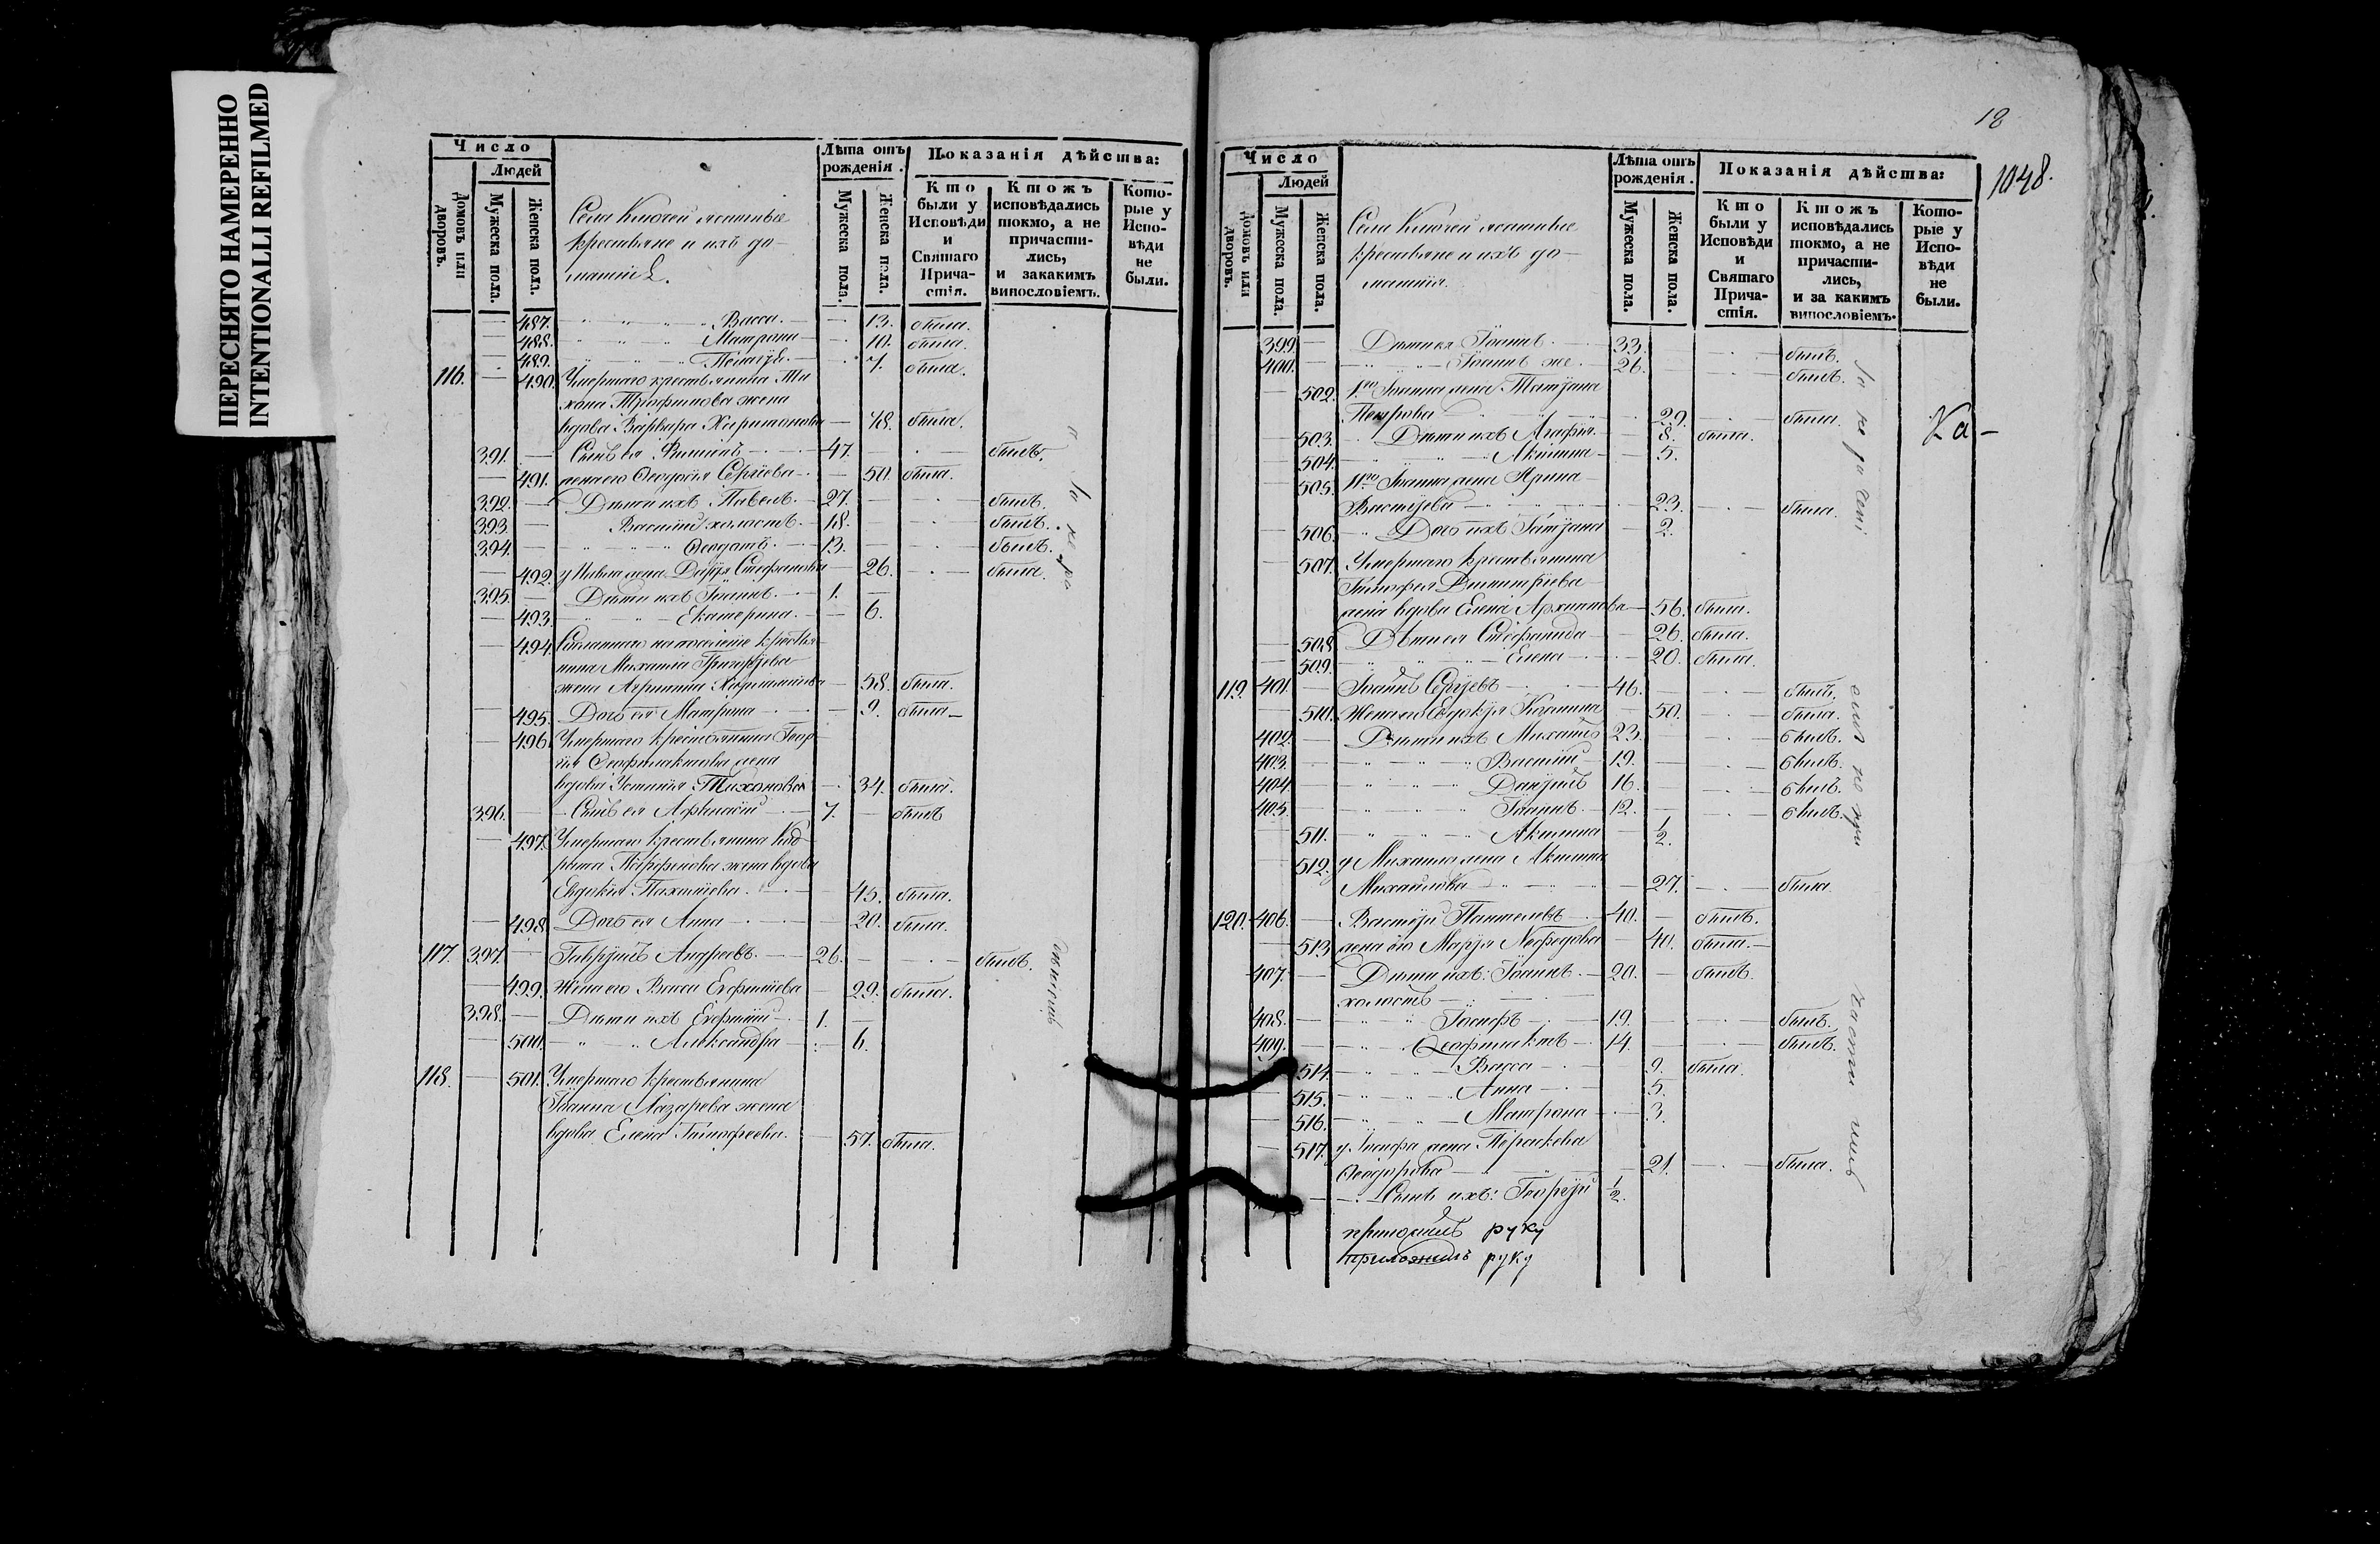 ПЕРЕСНЯТО НАМЕРЕННО
INTENTIONALLI REFILMED
Число
Людей
Домовъ или дворовъ.
Мужеска пола.
Женска пола.
Села Ключей ясашные
крестьяне и ихъ до-
машніе.
Лѣта отъ рожденія.
Мужеска пола.
Женска пола.
Показанія дѣйства:
Кто были у Исповѣди и Святаго Прича-стія.
Ктожъ исповѣдались токмо, а не причасти-лись, и закакимъ винословіемъ.
Кото-рые у Испо-вѣди не были.
— 487. " " " Васса. — 13. была.
— 488. " " " Матрона — 10. была.
— 489. " " " Пелагѣя. — 7. была.
116. — 490. Умершаго крестьянина Ти
хона Трофимова жена
вдова Варвара Харитонова — 78. была.
391. — Сынъ ея Филипъ — 47. — былъ.
— 491. жена его Ѳеодосія Сергіева — 50. была.
392. — Дѣти ихъ Павелъ. — 27. — былъ.
393. — Василій холостъ. — 18. — былъ.
394. — " " " Ѳеодотъ — 13. — былъ.
— 492. у Павла жена Дарія Стефанова — 26. — была.
395. — Дѣти ихъ Іоаннъ. — 1. —
— 493. " " " Екатерина. — 6.
— 494. Сосланнаго на поселеніе крестья
нина Михаила Григорьева
жена Агрипина Харитонова — 58. была.
— 495. Дочь ея Матрона — 9. была —
— 496. Умершаго крестьянина Геор
гія Ѳеофилактова жена
вдова Устинія Тихоновая — 34. была.
396. — Сынъ ея Аѳанасій — 7. — былъ
— 497. Умершаго крестьянина Код
рата Перфилова жена вдова
Евдокія Пахомова. — 45. была.
— 498. Дочь ея Анна — 20. была.
117. 397. — Гавріилъ Андреевъ. — 26. — былъ.
— 499. Жена его Васса Евфимова — 29. была.
398. — Дѣти ихъ Евфимій — 1. —
— 500. " " Александра — 6.
118. — 501. Умершаго крестьянина
Іоанна Лазарева жена
вдова Елена Тимофеева. — 57. была.
18
1048.
Число
Людей
Домовъ или дворовъ.
Мужеска пола.
Женска пола.
Села Ключей ясашные
крестьяне и ихъ до-
машнія.
Лѣта отъ рожденія.
Мужеска пола.
Женска пола.
Показанія дѣйства:
Кто были у Исповѣди и Святаго Прича-стія.
Ктожъ исповѣдались токмо, а не причасти-лись, и за какимъ винословіемъ.
Кото-рые у Испо-вѣди не были.
399. — Дѣти ея Іоаннъ — 33. — былъ.
400. — " " Іоаннъ же. — 26. — былъ.
— 502. 1го Іоанна жена Татіана
Петрова — 29. — была.
— 503. Дѣти ихъ Агафія. — 8. была.
— 504. " " " Акилина — 5.
— 505. 2го Іоанна жена Ирина
Васильева — 23. — была.
— 506. Дочь ихъ Татіана — 2.
— 507. Умершаго крестьянина
Тимофея Димитріева
жена вдова Елена Архипова — 56. была.
— 508. Дѣти ея Стефанида — 26. была.
— 509. " " " Елена — 20. была.
119. 401. — Іоаннъ Сергіевъ — 46. — былъ.
— 510. Жена его Евдокія Козмина — 50. — была.
402. — Дѣти ихъ Михаилъ 23. — былъ.
403. — " " " Василій — 19. — былъ.
404. — " " " Даніилъ 16. — былъ.
405. — " " " Іоаннъ. — 12. — былъ.
— 511. " " " Акилина — 1/2.
— 512. у Михаила жена Акилина
Михайлова — 27. — была.
120. 406. — Василій Пантелеевъ — 40. — былъ.
— 513. жена его Марія Нефедова — 40. была. —
407. — Дѣти ихъ: Іоаннъ. — 20. — былъ.
холостъ —
408. — " " Іосифъ — 19. — былъ.
409. — " " Ѳеофилактъ — 14. — былъ.
— 514. " " " Васса — 9. была.
— 515. " " " Анна — 5.
— 516. " " " Матрона — 3.
— 517. у Іосифа жена Параскева
Ѳеодорова — 21. — была.
— Сынъ ихъ: Георгій 1/2.
приложилъ руку
приложилъ руку
Ка —